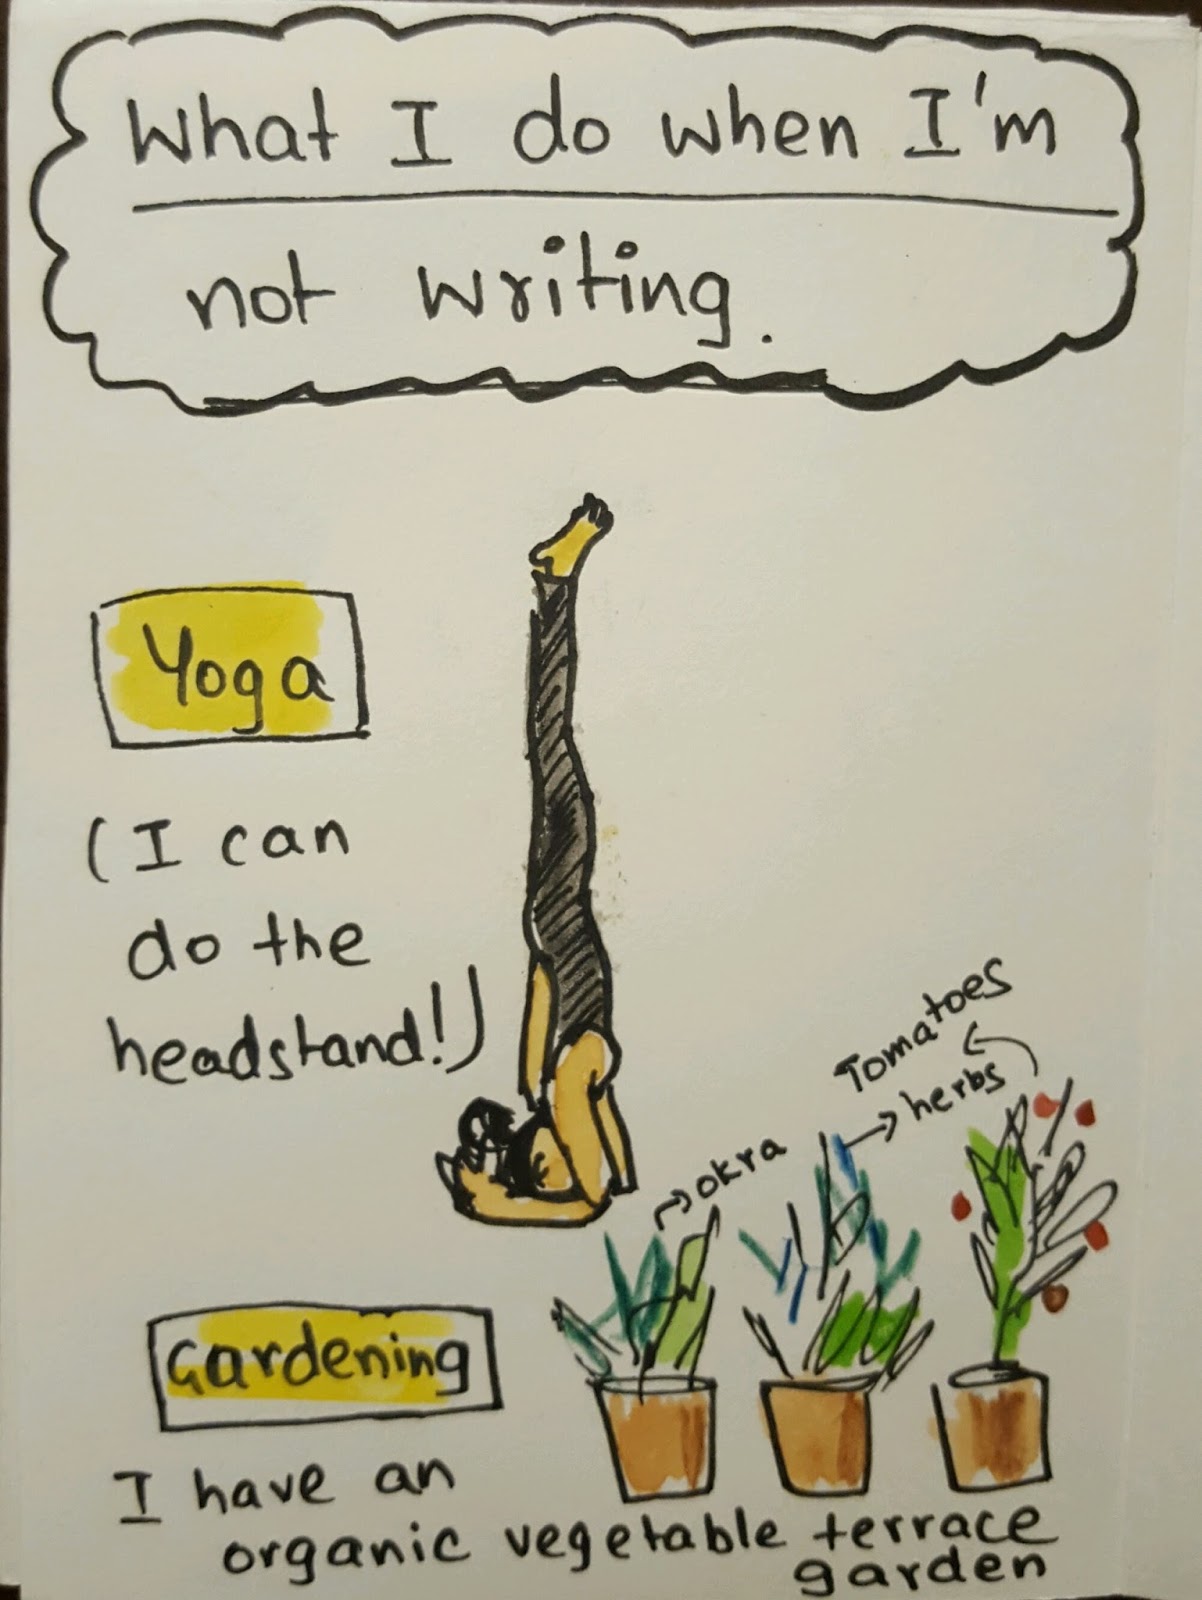 What I do when I'm
not writing.
Yoga
(I can
do the
headstand!)
Tomatoes
herbs
okra
Gardening
I have an
organic vegetable terrace
garden